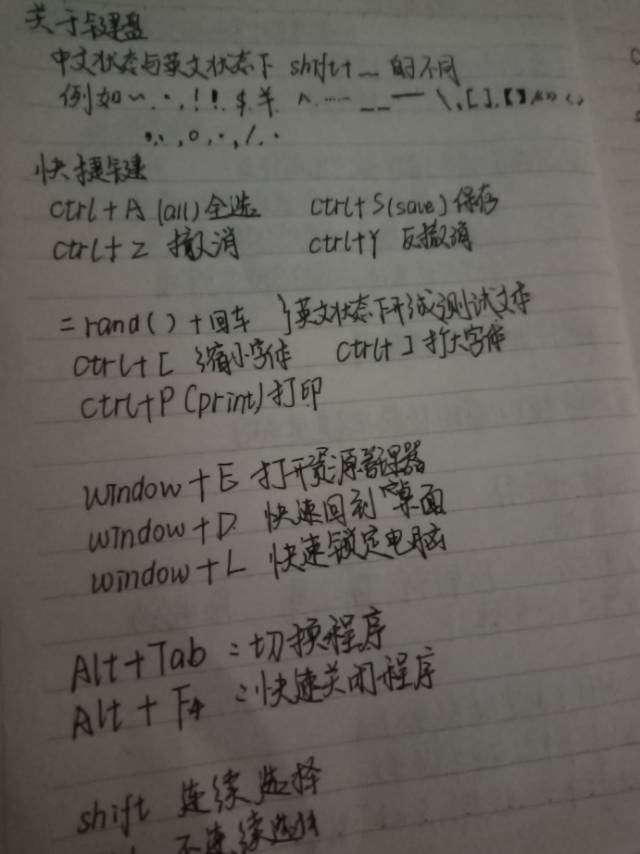 关于键盘
中文状态与英文状态下 shift+ 的不同
例如
快捷键
ctrl+A (all) 全选 ctrl+S(save) 保存
ctrl+Z 撤消 ctrl+Y 反撤消
=rand()+回车 }英文状态下形成测试文本
ctrl+[ 缩小字体 ctrl+] 扩大字体
ctrl+P (print) 打印
window+E 打开资源管理器
window+D 快速回到桌面
window+L 快速锁定电脑
Alt+Tab : 切换程序
Alt+F4 : 快速关闭程序
shift 连续选择
不连续选择